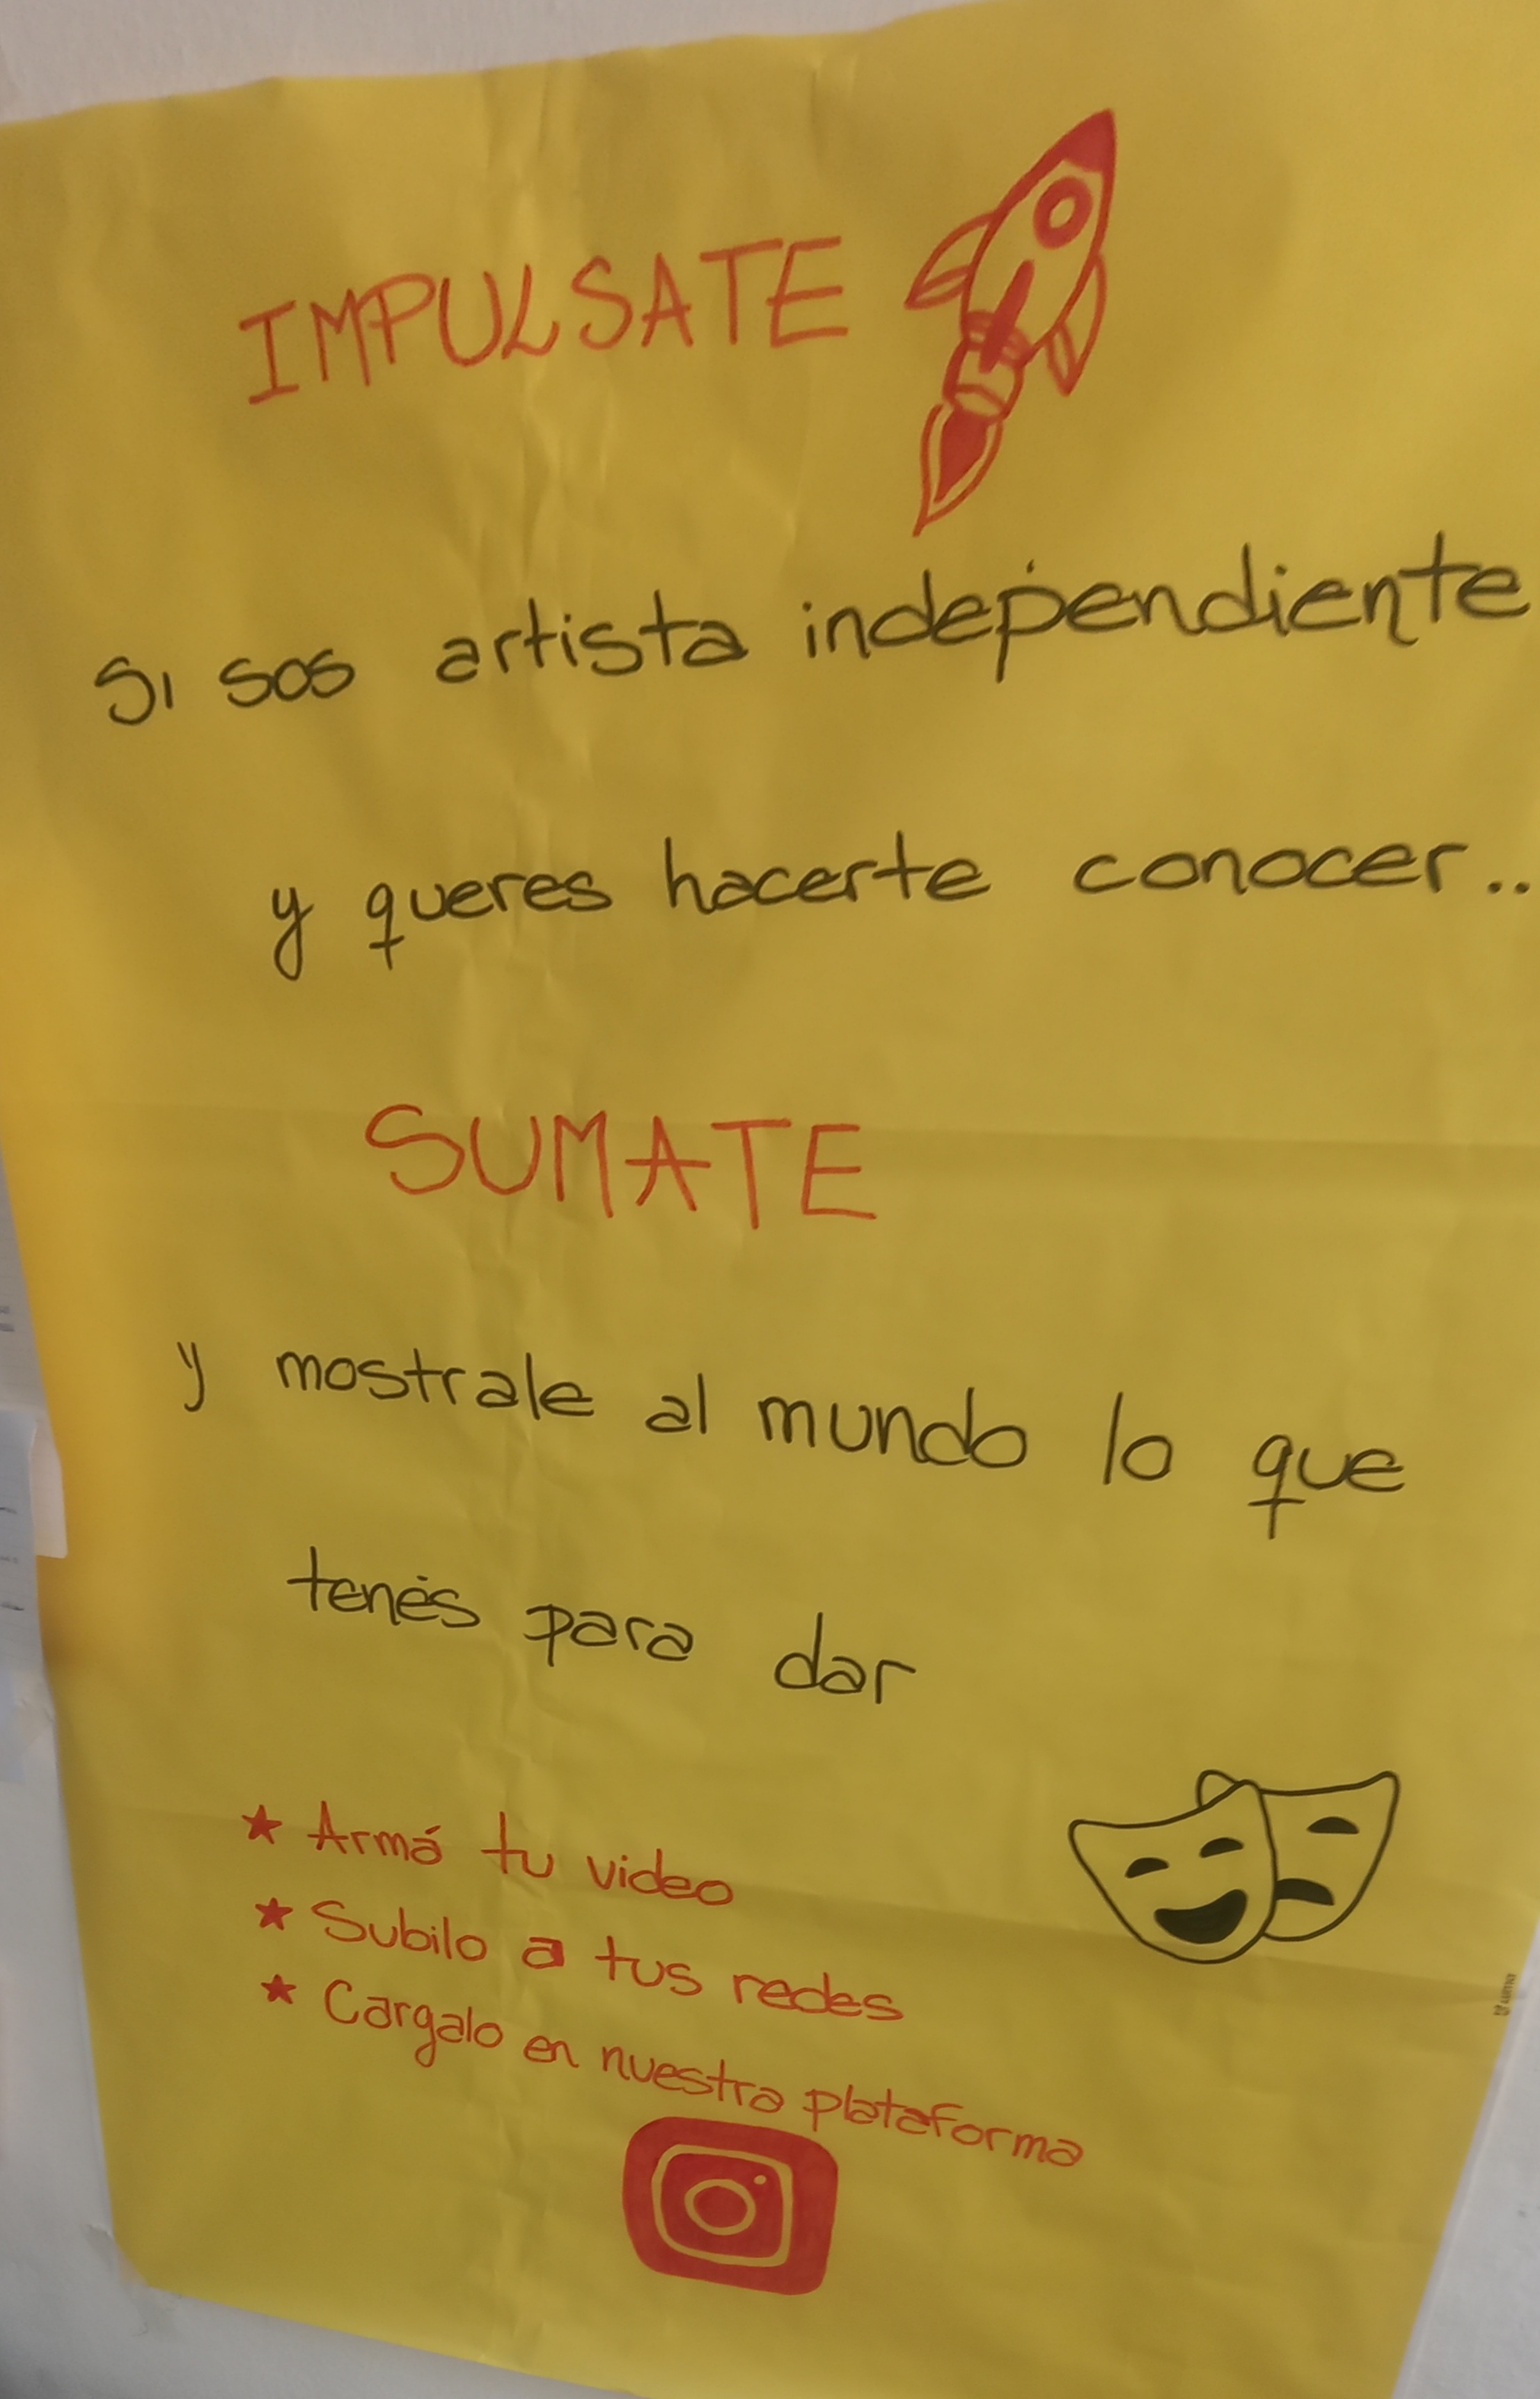 IMPULSATE
Si sos artista independiente
y queres hacerte conocer..
SUMATE
y mostrale al mundo lo que
tenés para dar
★ Armá tu video
★ Subilo a tus redes
★ Cargalo en nuestra plataforma